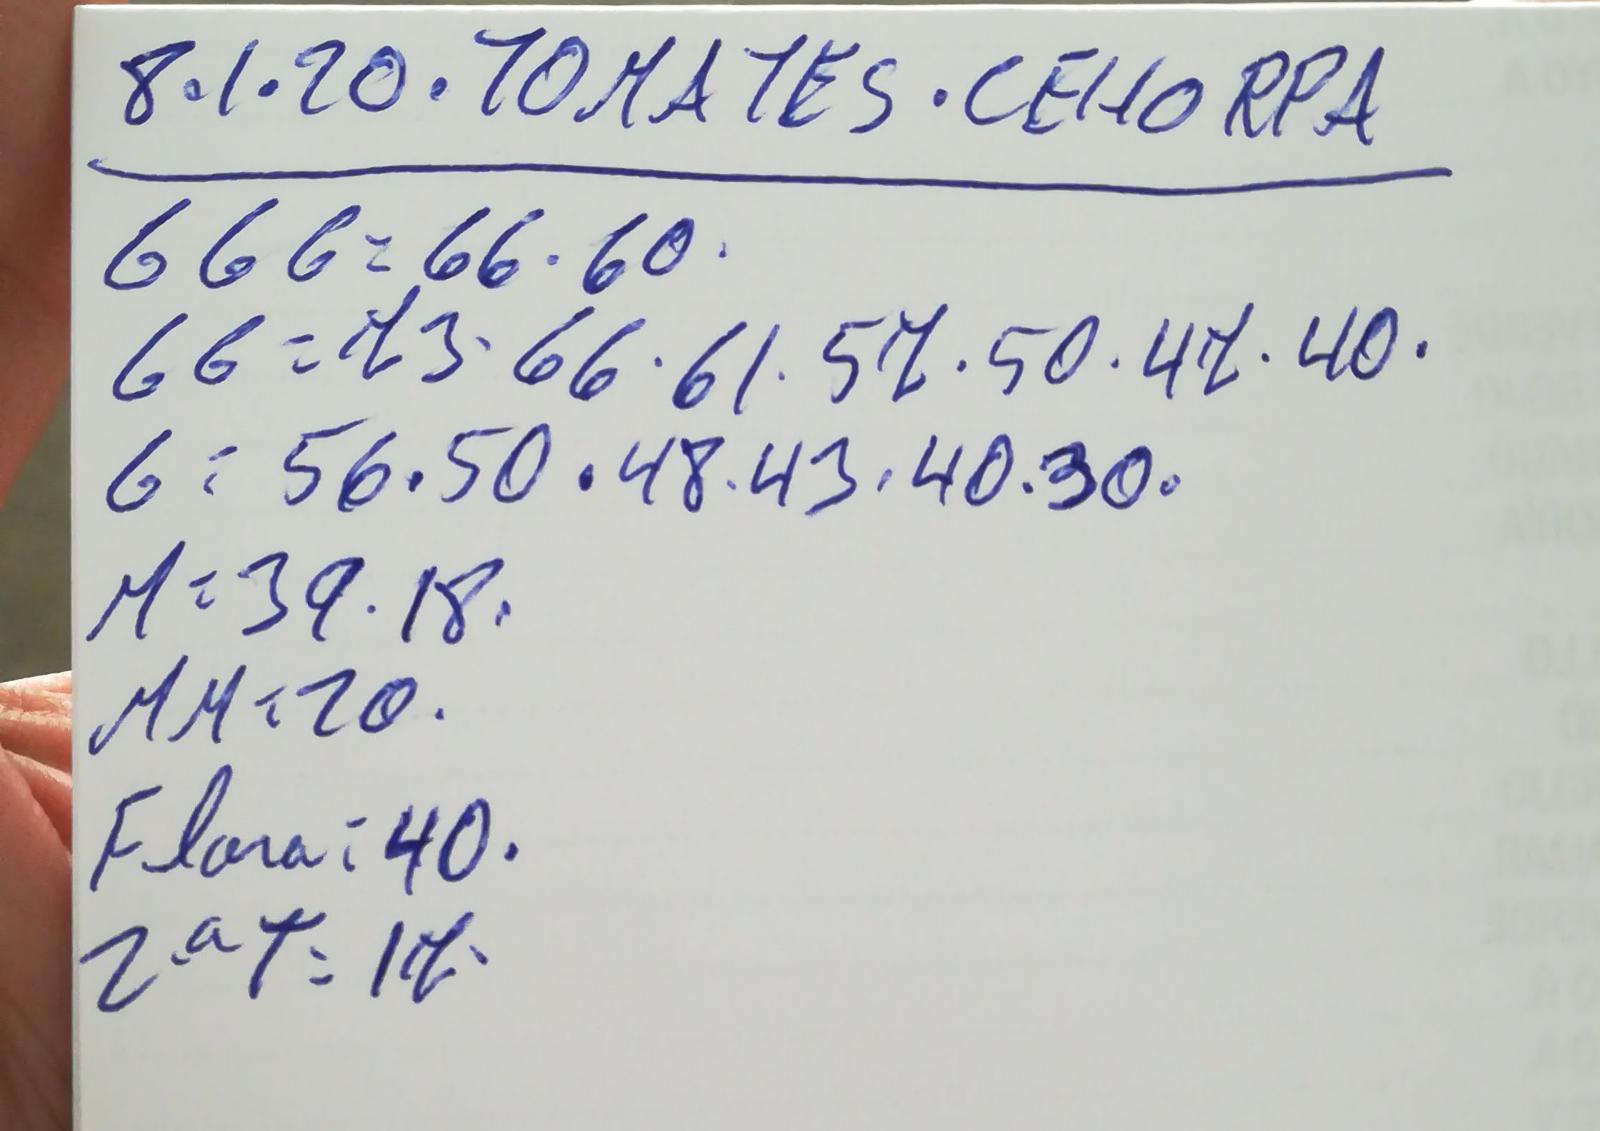 8.1.20.TOMATES.CEHORPA
GGG=66.60.
GG=73.66.61.57.50.47.40.
G=56.50.48.43.40.30.
M=39.18.
MM=20.
Flora=40.
2ªT=17.